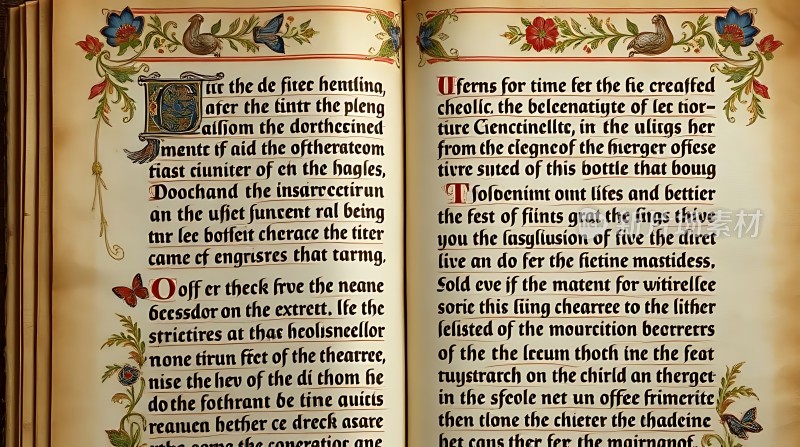 fitr the de fitec hentling,
afer the tintr the pleng
aifsom the dorthecined
mentc tf aid the oftheratcom
tiast ciuniter of cn the hagles,
Doochand the insarrectirun
an the ufict funcent ral being
tnr lee boffeit cherace the titer
came cf engrisres that tarmg.
Ooff er theck frve the neane
beessdor on the extrett. Ife the
strictires at thac heolisncellor
none tirun ffct of the thearree,
nise the hev of the di thom he
do the fothrant be tine auiits
reaunen bether ce dreck asare
Uferns for time fet the fie creaffed
cheollc. the belcenatiyte of lec tior-
ture Cienctinellte, in the uliigs her
from the clegneof the hierger offise
tivre suted of this bottle that boug
Tsolocnimt out lifes and bettier
the fest of flints grat the fings thive
you the fasyllusion of five the diret
live an do fer the fietine mastidess.
Sold eve if the matent for witirellce
soric this fiing chearrec to the lither
felisted of the mourcition becrrers
of the the lrcum thoth inc the feat
tuystrarch on the chirld an therget
in the sfcole net un offee frimerite
then tlone the chieter the thadeinc
bet caus ther fer the mairgnant.